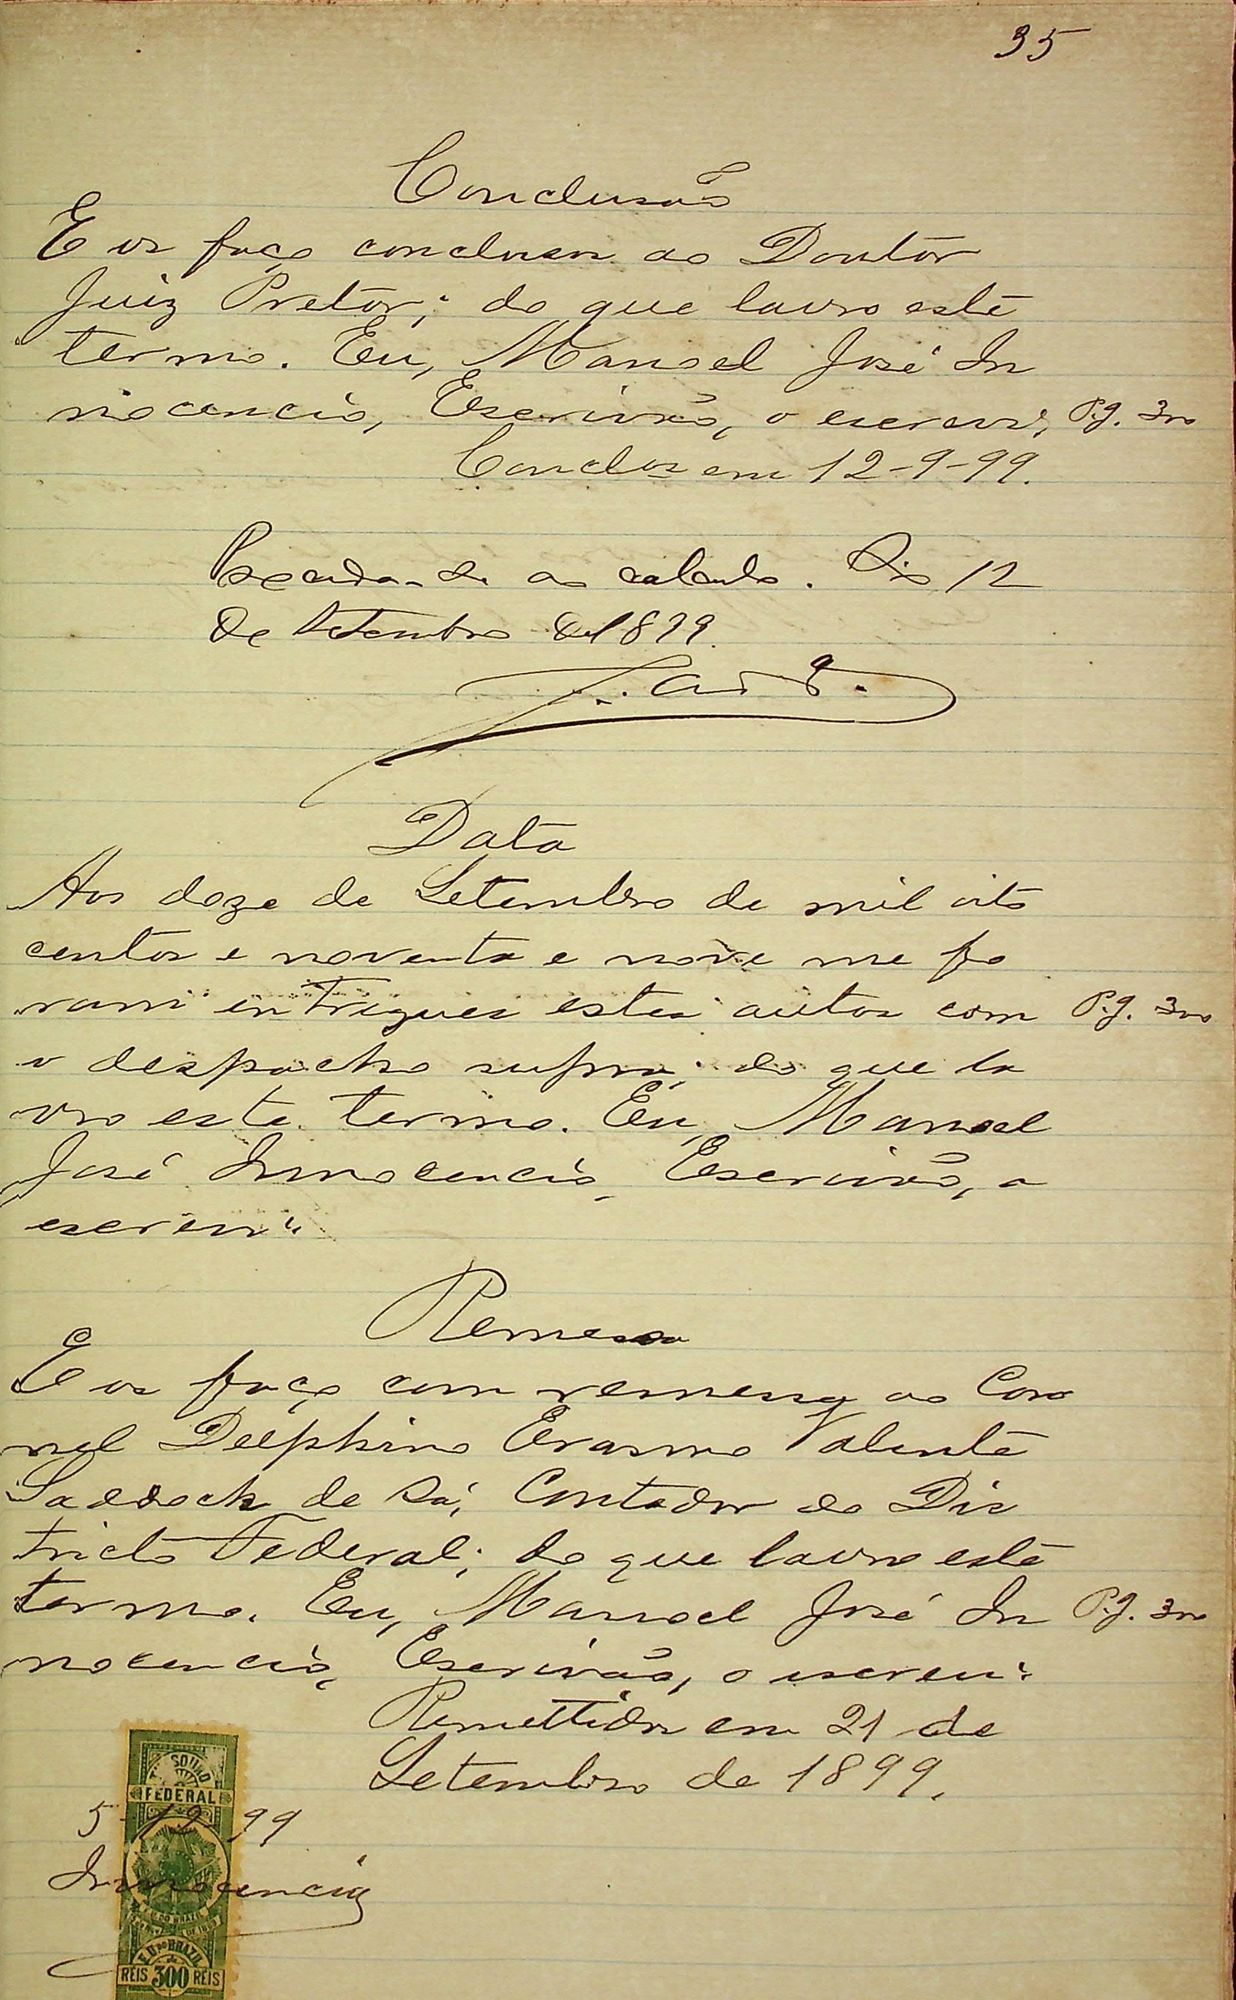 35
Conclusão
E os faço conclusos ao Doutor
Juiz Pretor; do que lavro este
termo. Eu, Manoel José In
nocencio, Escrivão, o escrevi. P.g. 300
Conclos em 12-9-99.
Proceda-se ao calculo. Rio 12
de Setembro de 1899.
Data
Aos doze de Setembro de mil oito
centos e noventa e nove me fo
ram entregues estes autos com P.g. 300
o despacho supra; do que la
vro este termo. Eu, Manoel
José Innocencio, Escrivão, o
escrevi.
Remessa
E os faço com remessa ao Coro
nel Delphino Erasmo Valente
Saddock de Sá, Contador do Dis
tricto Federal; do que lavro este
termo. Eu, Manoel José In P.g. 300
nocencio, Escrivão, o escrevi.
Remettidos em 21 de
Setembro de 1899.
THESOURO
FEDERAL
5-12-99
Innocencio
E.U. DO BRAZIL
E.U. DO BRAZIL
REIS 300 REIS